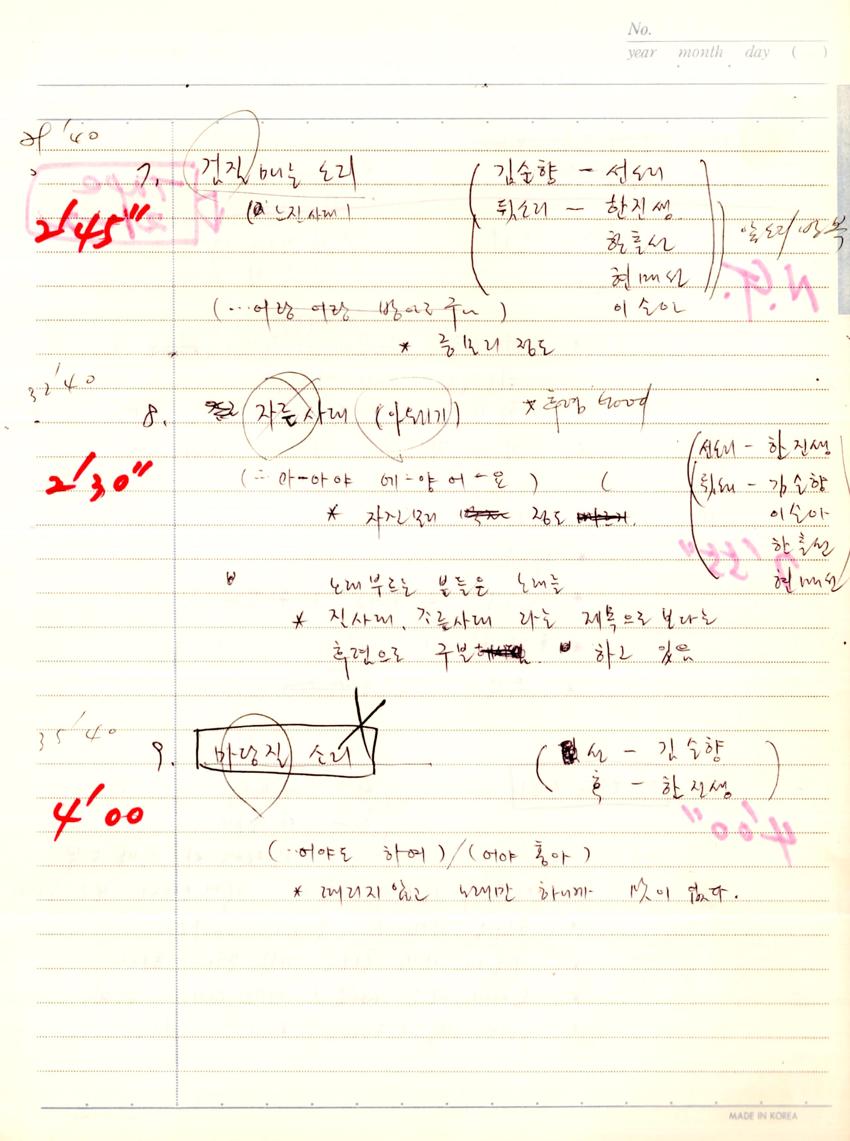 No.
year month day ( )
29'40
7. 검질 매는 소리 ( 김순향 - 선소리
2'45" (느진사대) 뒷소리 - 한진생
한출선
현매선
(…어랑 어랑 방아로구나) 이순아
* 중모리 정도
32'40
8. 자른사대 (아뢰기) * 후렴 Good
2'30"
선소리 - 한진생
(… 아-아야 에-양 어-요) ( 뒷소리 - 김순향
* 자진모리 정도 이순아
한출선
현매선
노래부르는 분들은 노래를
* 진사대, 자른사대 라는 제목으로 보다는
후렴으로 구분 하고 있음
35'40
9. 마당질 소리 ( 선 - 김순향
4'00 후 - 한진생 )
(…어야도 하여)/(어야 홍아)
* 때리지 않고 노래만 하니까 맛이 없다.
MADE IN KOREA